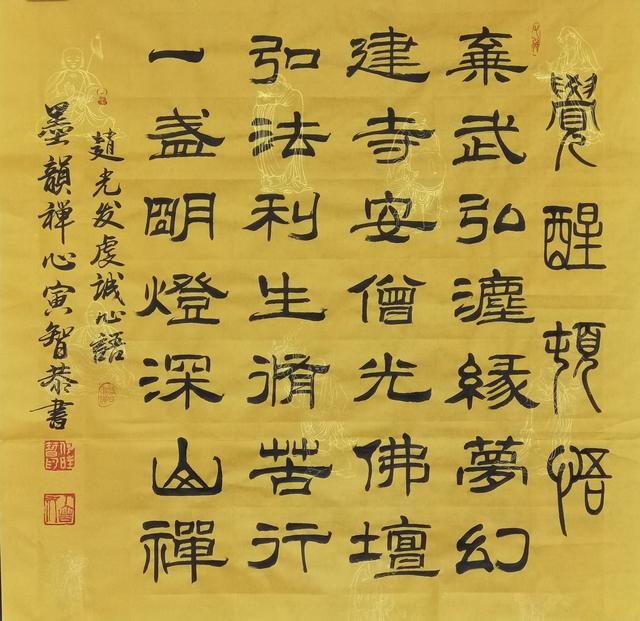 覺醒頓悟
棄武弘廛緣夢幻
建寺安僧光佛壇
弘法利生脩苦行
一盏明燈深山禪
趙光发虔誠心語
墨韻禪心寅智恭書